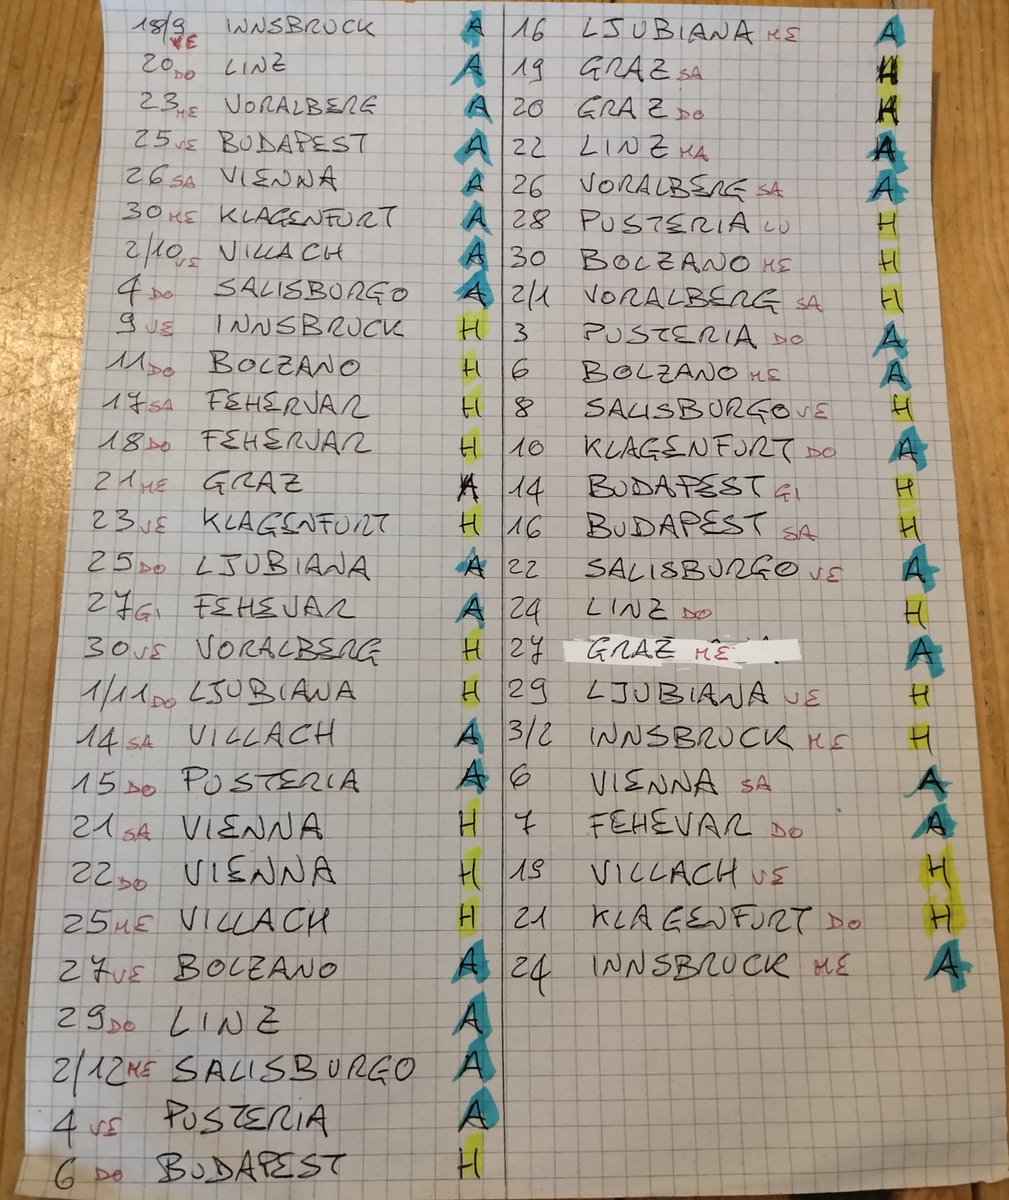 18/9 VE INNSBRUCK A
20 DO LINZ A
23 ME VORALBERG A
25 VE BUDAPEST A
26 SA VIENNA A
30 ME KLAGENFURT A
2/10 VE VILLACH A
4 DO SALISBURGO A
9 VE INNSBRUCK H
11 DO BOLZANO H
17 SA FEHERVAR H
18 DO FEHERVAR H
21 ME GRAZ A
23 VE KLAGENFURT H
25 DO LJUBIANA A
27 GI FEHEVAR A
30 VE VORALBERG H
1/11 DO LJUBIANA H
14 SA VILLACH A
15 DO PUSTERIA A
21 SA VIENNA H
22 DO VIENNA H
25 ME VILLACH H
27 VE BOLZANO A
29 DO LINZ A
2/12 ME SALISBURGO A
4 VE PUSTERIA A
6 DO BUDAPEST H
16 LJUBIANA ME A
19 GRAZ SA H
20 GRAZ DO H
22 LINZ MA A
26 VORALBERG SA A
28 PUSTERIA LU H
30 BOLZANO ME H
2/1 VORALBERG SA H
3 PUSTERIA DO A
6 BOLZANO ME A
8 SALISBURGO VE H
10 KLAGENFURT DO A
14 BUDAPEST GI H
16 BUDAPEST SA H
22 SALISBURGO VE A
24 LINZ DO H
27 GRAZ ME A
29 LJUBIANA VE H
3/2 INNSBRUCK ME H
6 VIENNA SA A
7 FEHEVAR DO A
19 VILLACH VE H
21 KLAGENFURT DO H
24 INNSBRUCK ME A